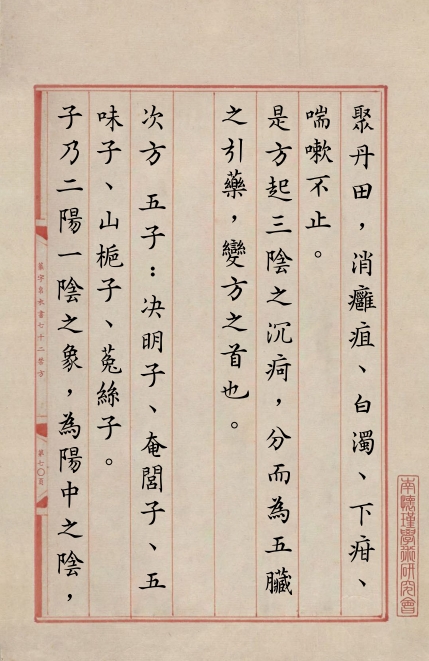 聚丹田，消癰疽、白濁、下疳、
喘嗽不止。
是方起三陰之沉疴，分而為五臟
之引藥，變方之首也。
次方　五子：决明子、奄閭子、五
味子、山梔子、菟絲子。
子乃二陽一陰之象，為陽中之陰，
第七〇頁
南懷瑾學術研究會